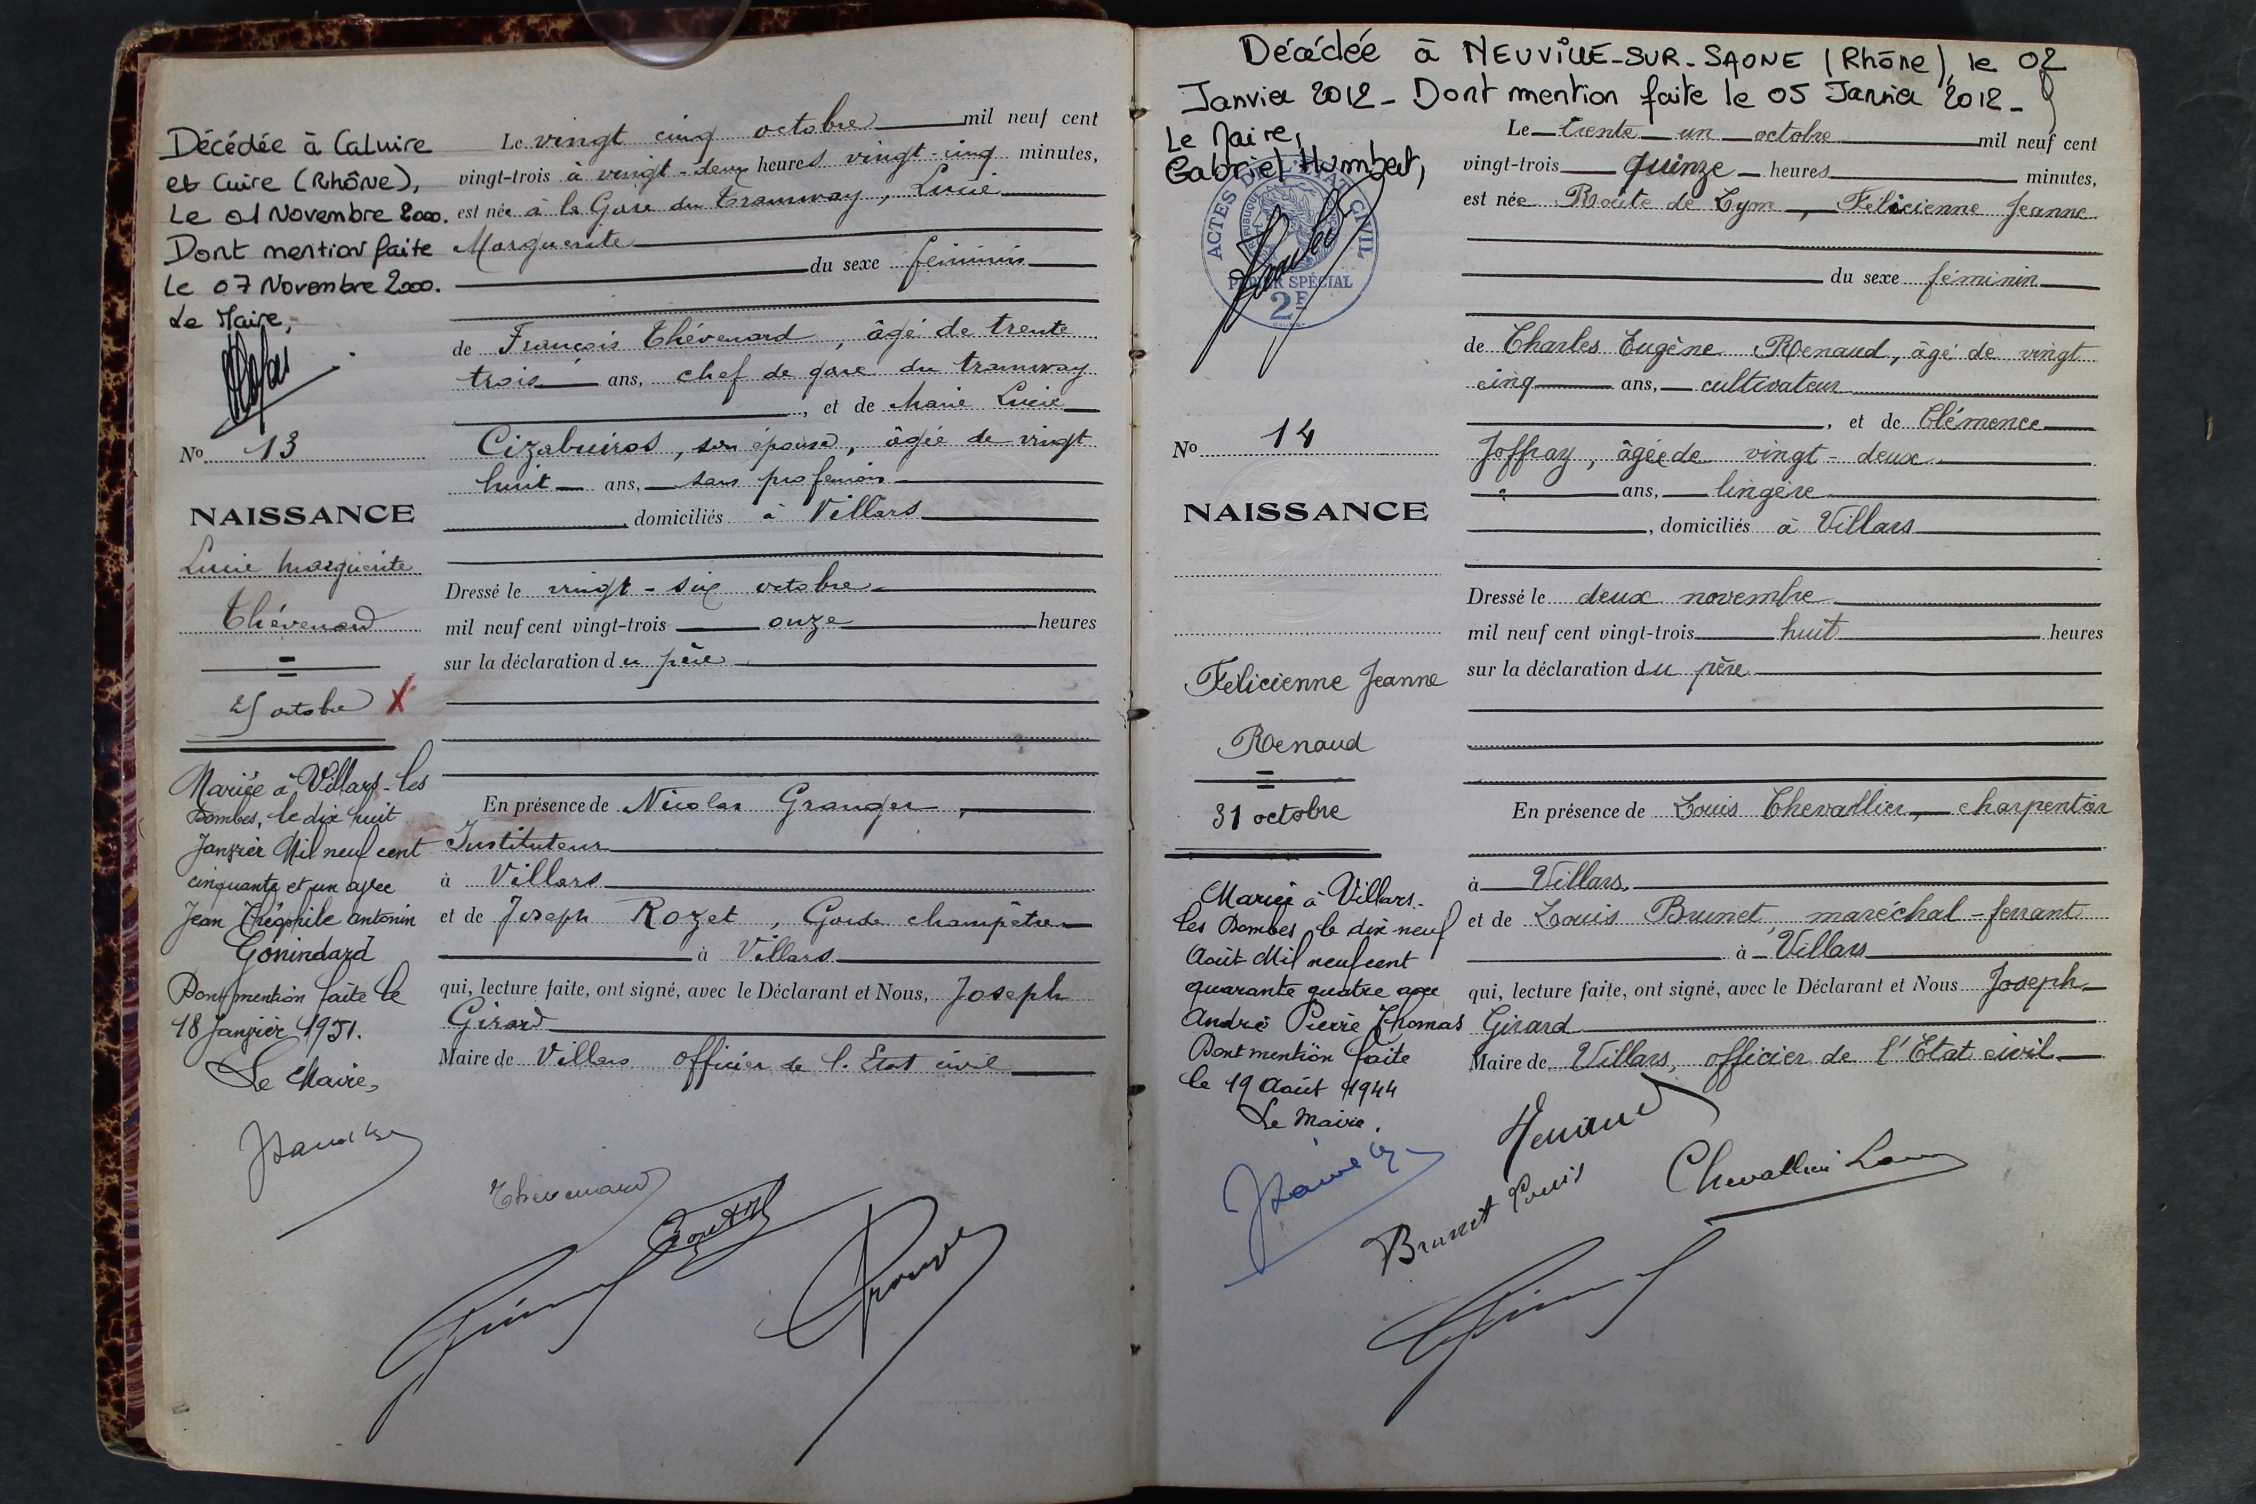 Décédée à Caluire
et Cuire (Rhône),
Le 01 Novembre 2000.
Dont mention faite
Le 07 Novembre 2000.
Le Maire,
No 13
NAISSANCE
Lucie Marguerite
Thévenard
25 octobre X
Mariée à Villars-les
Dombes, le dix huit
Janvier Mil neuf cent
cinquante et un avec
Jean Théophile Antonin
Gonindard
Dont mention faite le
18 Janvier 1951.
Le Maire,
Le vingt cinq octobre mil neuf cent
vingt-trois à vingt-deux heures vingt-cinq minutes,
est née à la Gare du Tramway, Lucie
Marguerite
du sexe féminin
de François Thévenard, âgé de trente
trois ans, chef de gare du tramway
, et de Marie Lucie
Cizabuiros, son épouse, âgée de vingt
huit ans, sans profession
, domiciliés à Villars
Dressé le vingt-six octobre
mil neuf cent vingt-trois onze heures
sur la déclaration du père
En présence de Nicolas Granger,
Instituteur
à Villars
et de Joseph Rozet, Garde champêtre
à Villars
qui, lecture faite, ont signé, avec le Déclarant et Nous, Joseph
Girard
Maire de Villars officier de l'Etat civil
Thévenard
Décédée à NEUVILLE-SUR-SAONE (Rhône), le 02
Janvier 2012 - Dont mention faite le 05 Janvier 2012 -
Le Maire,
Gabriel Humbert,
ACTES DE L'ETAT CIVIL
REPUBLIQUE
PAPIER SPÉCIAL
2F
No 14
NAISSANCE
Félicienne Jeanne
Renaud
31 octobre
Mariée à Villars-
les Dombes le dix neuf
Août Mil neuf cent
quarante quatre avec
André Pierre Thomas
Dont mention faite
le 19 Août 1944
Le Maire.
Le trente un octobre mil neuf cent
vingt-trois quinze heures minutes,
est née Route de Lyon, Félicienne Jeanne
du sexe féminin
de Charles Eugène Renaud, âgé de vingt
cinq ans, cultivateur
, et de Clémence
Joffray, âgée de vingt-deux
ans, lingère
, domiciliés à Villars
Dressé le deux novembre
mil neuf cent vingt-trois huit heures
sur la déclaration du père
En présence de Louis Chevallier, charpentier
à Villars
et de Louis Brunet, maréchal-ferrant
à Villars
qui, lecture faite, ont signé, avec le Déclarant et Nous Joseph
Girard
Maire de Villars, officier de l'Etat civil
Renaud
Brunet Louis
Chevallier Louis